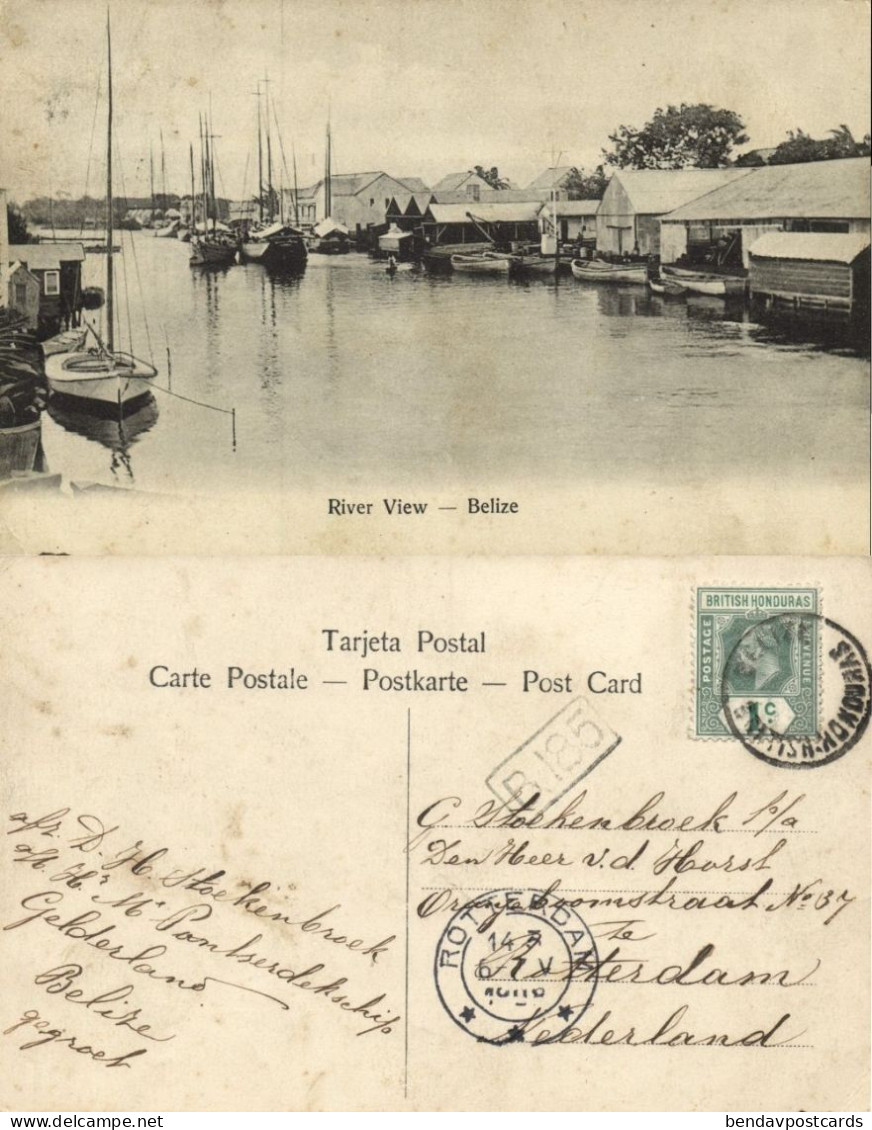 River View — Belize
Tarjeta Postal
Carte Postale — Postkarte — Post Card
BRITISH HONDURAS
POSTAGE
REVENUE
1c
B 185
afz. D. H. Stoekenbroek
a/b Hr. Ms. Pantserdekschip
Gelderland
Belize
gegroet
G Stoekenbroek p/a
Den Heer v.d. Horst
Oranjeboomstraat No 37
te
Rotterdam
Nederland
ROTTERDAM
bendavpostcards